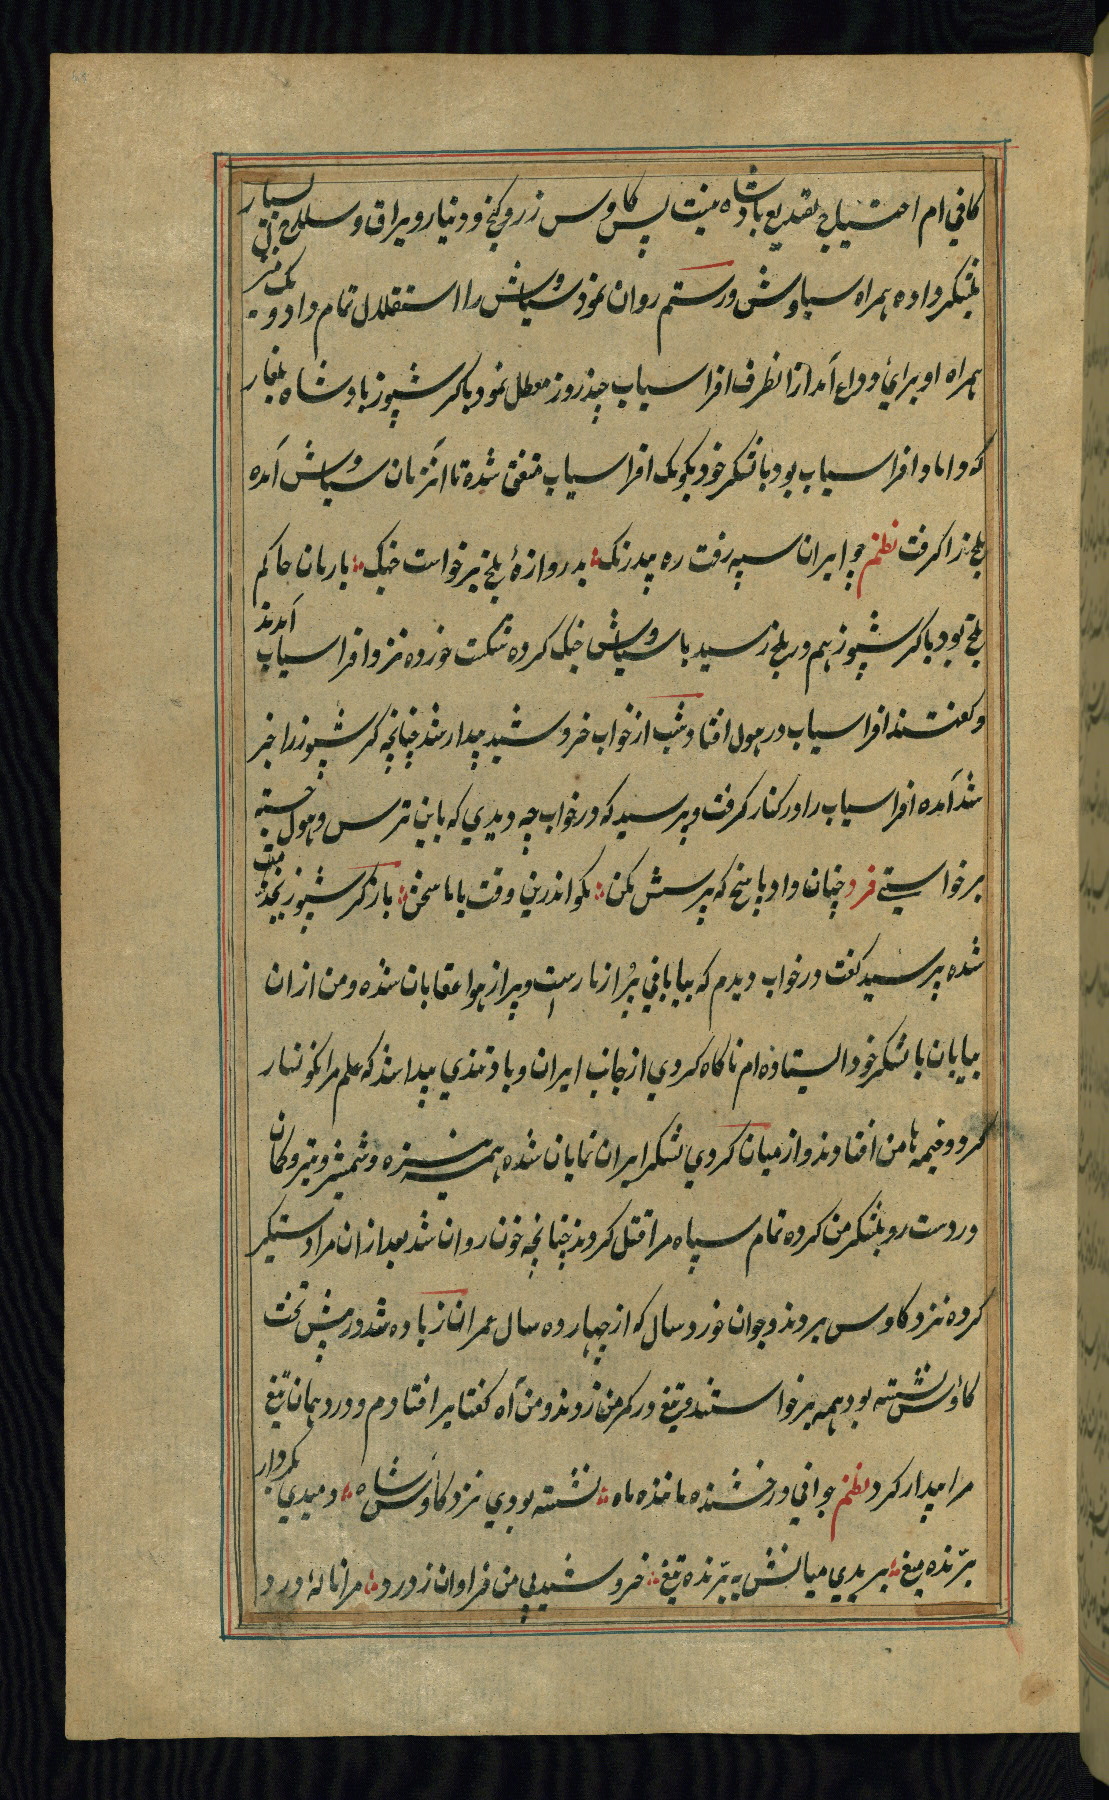 کافی ام احتیاج تصدیع پادشاه نیست پس کاوس زر و گنج و دینار و یراق و سلاح بی بسیار
بلشکر داده همراه سیاوش و رستم روان نمود سیاوش را استقلال تمام داد و یک منزل
همراه او برای وداع آمد از انطرف افراسیاب چند روز معطل نمود باکرشیوز بادشاه بلغار
که داماد افراسیاب بود با لشکر خود بکومک افراسیاب متفق شده تا آنزمان سیاوش آمده
بلخ را گرفت نظم چو ایران سپه رفت ره بیدرنک بدروازهٔ بلخ برخواست جنک بارمان حاکم
بلخ بود باکرشیوز هم در بلخ رسید با سیاوش جنک کرده شکست خورده نزد افراسیاب آمدند
و گفتند افراسیاب در هول افتاد شب از خواب خروشید بیدار شد چنانچه کرشیوز را خبر
شد آمده افراسیاب را در کنار گرفت و پرسید که در خواب چه دیدی که باین ترس و هول جسته
برخواستی فرد چنان داد پاسخ که پرسش مکن مکو اندرین وقت با ما سخن باز کرشیوز بخدمت
شده پرسید گفت در خواب دیدم که بیابانی پر از مار است و پر از هوا عقابان شده و من ازان
بیابان با لشکر خود ایستاده ام ناکاه گردی از جانب ایران و باد تندی پیدا شد که علم مرا نکونسار
کرد و خیمه ها من افتادند و از میان گردی لشکر ایران نمایان شده همه نیزه و شمشیر و تیر و کمان
در دست رو بلشکر من کرده تمام سپاه مرا قتل کردند چنانچه خون روان شد بعد ازان مرا دستکیر
کرده نزد کاوس بردند و جوان خورد سال که از چهارده سال عمر ان زیاده نشد در پیش تخت
کاوس نشسته بود همه برخواستند و تیغ در کمر من زدند و من آه گفتا بر افتادم و درد همان تیغ
مرا بیدار کرد نظم جوانی درخشنده مانند ماه نشسته بودی نزد کاوس شاه دمیدی بکردار
برنده میغ بریدی میانش به برنده تیغ خروشیدیی من فراوان ز درد مرا ناله و درد